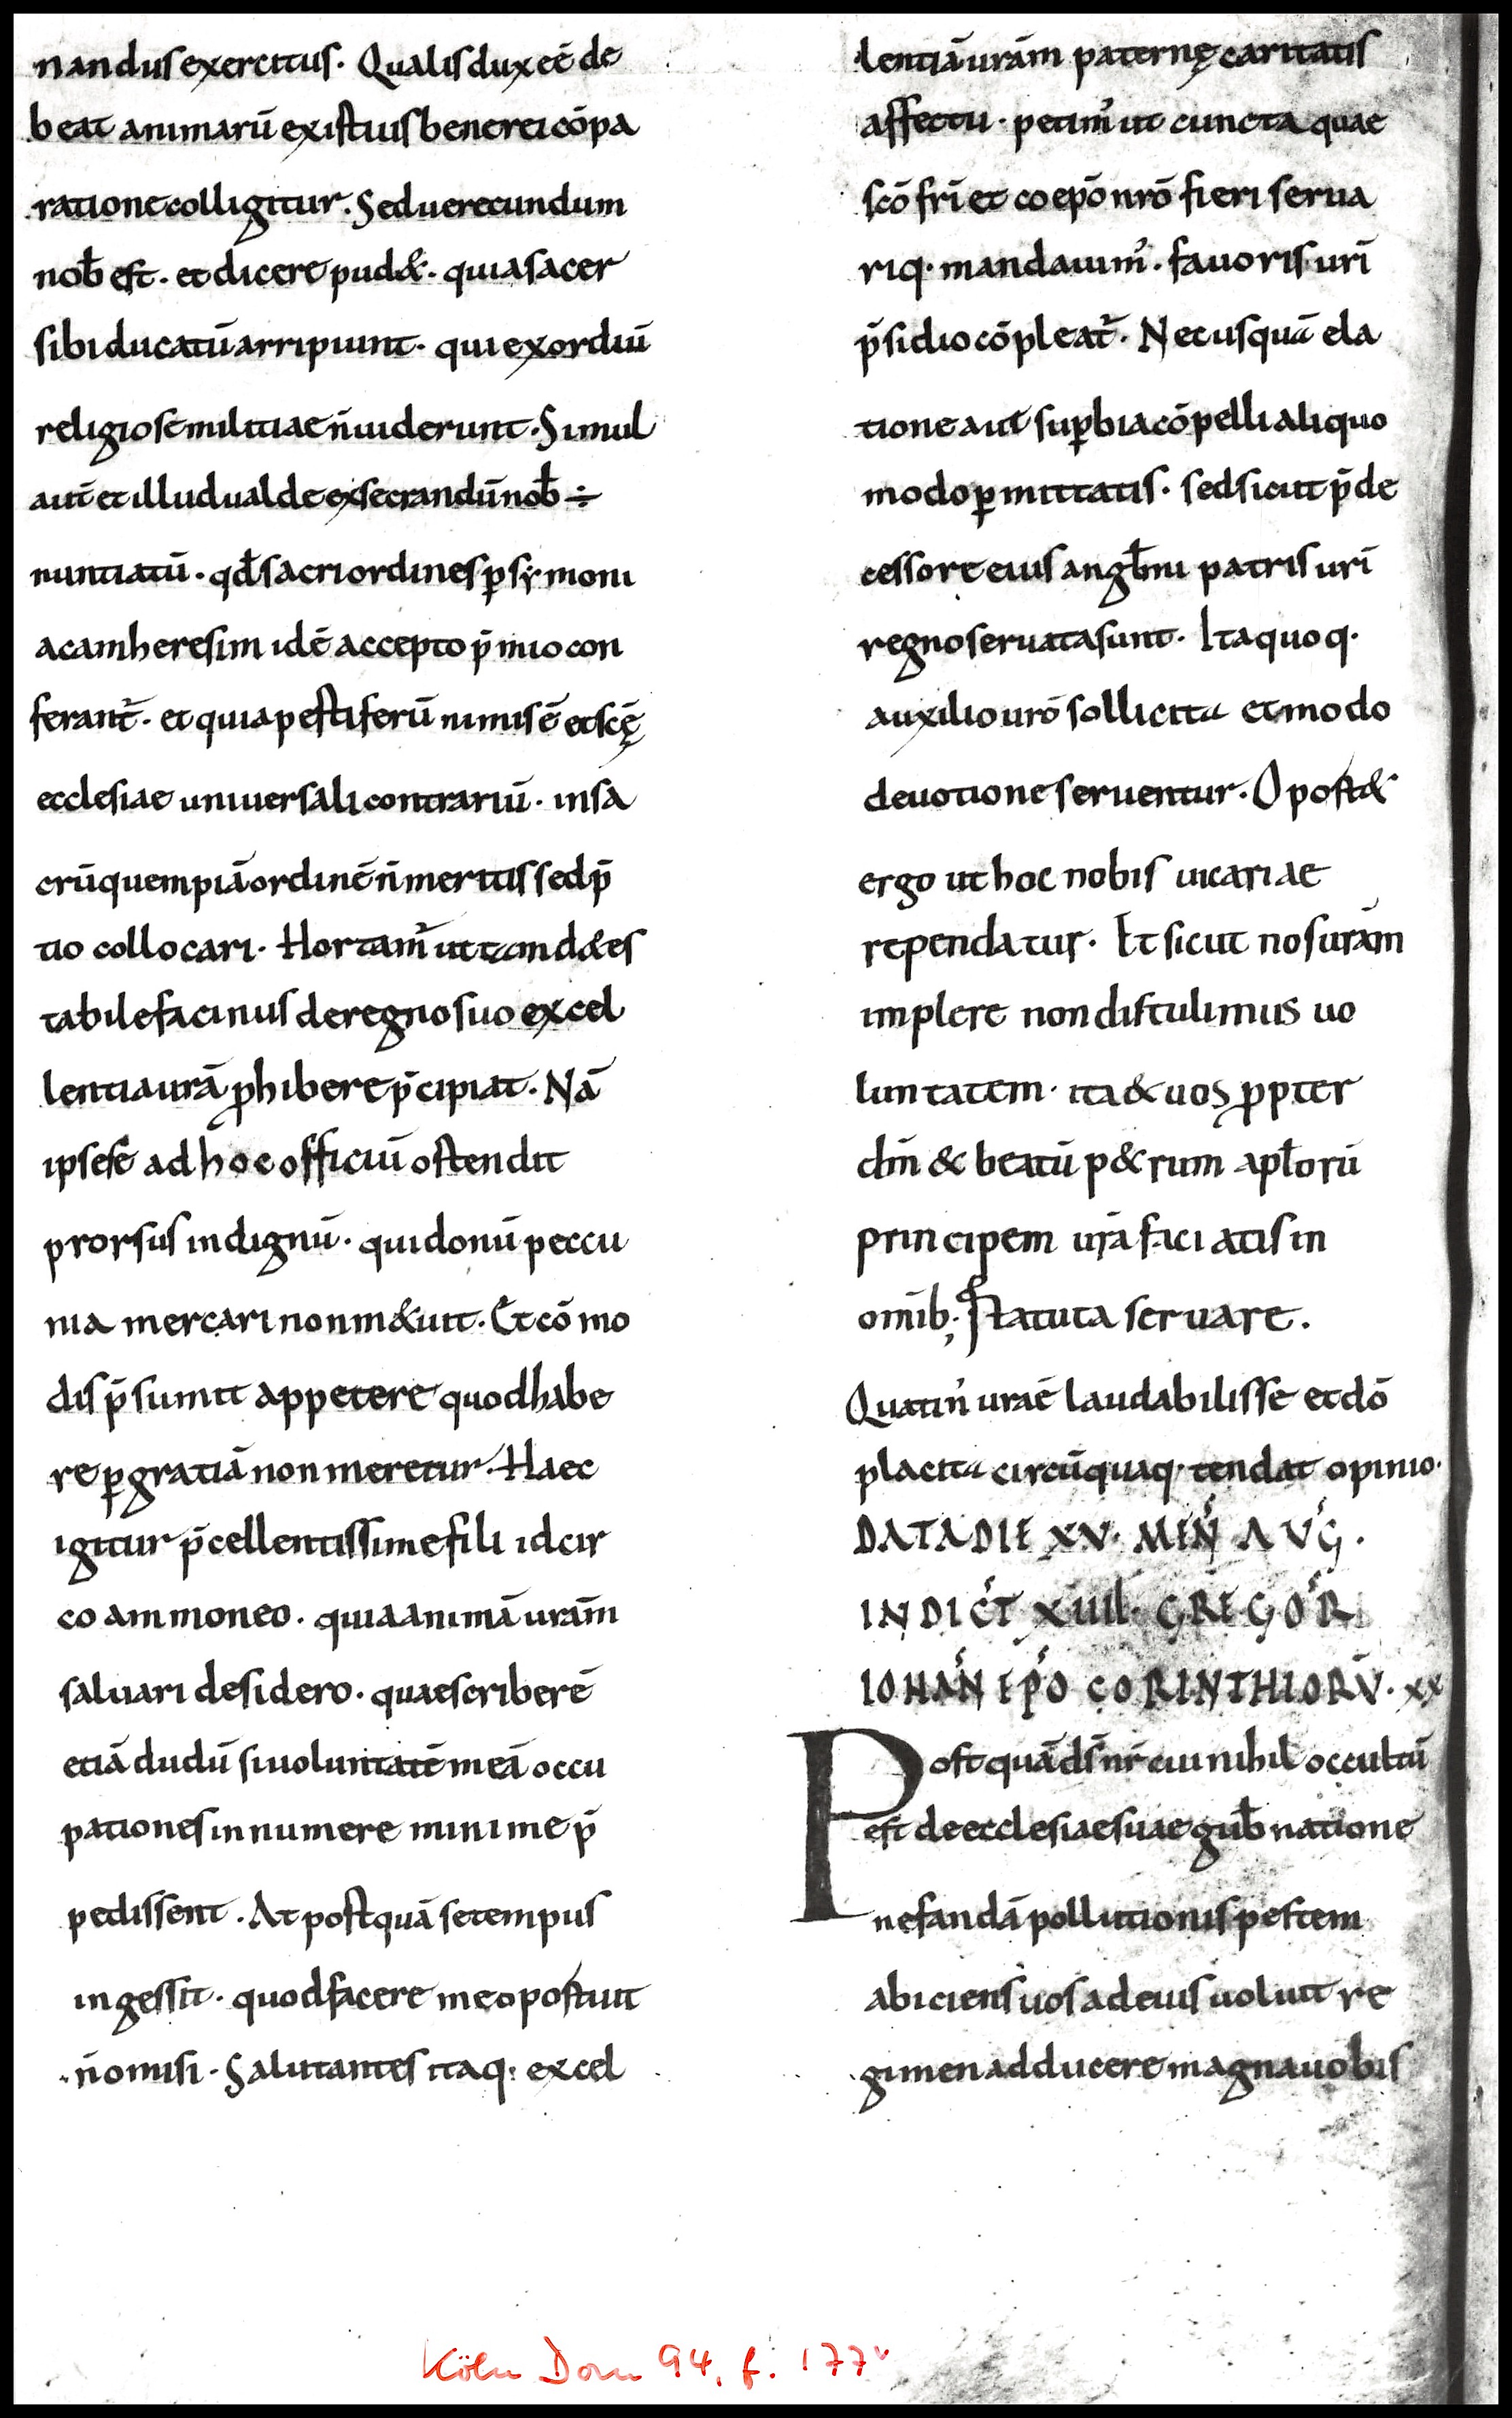 nandus exercitus. Qualis dux eē de
beat animarū existuis bene rei cōpa
ratione colligitur. Sed uerecundum
nob̄ est. et dicere pud&. quia sacer
sibi ducatū arripiunt. qui exordiū
religiose militiae n̄ uiderunt. Simul
aut̄ et illud ualde exsecrandū nob̄ ÷
nuntiatū. qđ sacri ordines ꝑ sẏmoni
acam heresim idē accepto p̄mio con
ferant̄. et quia pestiferū nimis ē et scę
ecclesiae uniuersali contrariū. in sa
crū quempiā ordinē n̄ meritis sed p̄
tio collocari. Hortam̄ ut tam d&es
tabile facinus de regno suo excel
lentia urā ꝓhibere p̄cipiat. Nā
ipse se ad hoc officiū ostendit
prorsus indignū. qui donū peccu
nia mercari non m&uit. Et cōmo
dis p̄sumit appetere quod habe
re ꝑ gratiā non meretur. Haec
igitur p̄cellentissime fili idcir
co ammoneo. quia animā urām
saluari desidero. quae scriberē
etiā dudū si uoluntatē meā occu
pationes innumere minime p̄
pedissent. At postquā se tempus
ingessit. quod facere me opostuit
n̄ omisi. Salutantes itaq: excel
lentiā urām paternę caritatis
affectu. petim̄ ut cuncta quae
scō fri et coepō nrō fieri serua
riq. mandauim̄. fauoris uri
p̄sidio cōpleat̄. Nec usquā ela
tione aut suꝑbia cōpelli aliquo
modo ꝑmittatis. sed sicut p̄de
cessore eius angl̄mi patris uri
regno seruata sunt. Ita quoq.
auxilio urō sollicita et modo
deuotione seruentur. Opost&
ergo ut hoc nobis uicariae
rependatur. Et sicut nos urām
implere non distulimus uo
luntatem. ita & uos ꝓpter
dm̄ & beatū p&rum apl̄orū
principem urā faciatis in
omīb; statuta seruare.
Quatin̄ uraē laudabilis se et dō
placita circūquaq. tendat opinio.
DATA DIE XV. MEN̄ AVG.
INDICT XIIII. GREGOR
IOHAN EPO CORINTHIORV̄. XX
Postquā ds̄ nr̄ cui nihil occultū
est de ecclesiae suae gub̄natione
nefandā pollutionis pestem
abiciens uos ad eius uoluit re
gimen adducere magna uobis
Köln Dom 94, f. 177v